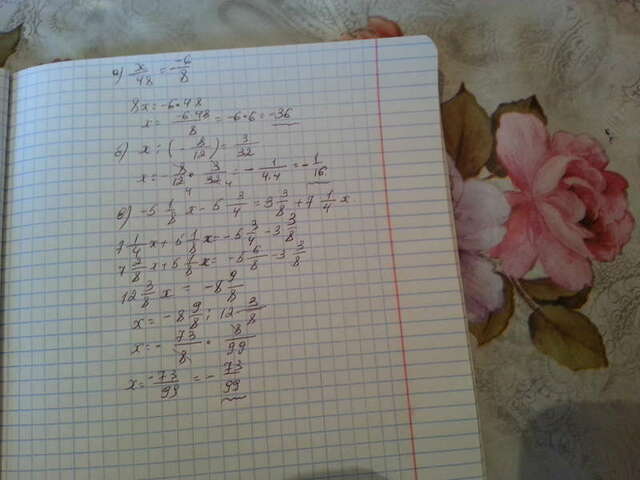 а) x/48 = -6/8
8x = -6·48
x = -6·48/8 = -6·6 = -36
б) x : (-8/12) = 3/32
x = -8/12 · 3/32 = -1/4·4 = -1/16
в) -5 1/8 x - 5 3/4 = 3 3/8 + 7 1/4 x
7 1/4 x + 5 1/8 x = -5 3/4 - 3 3/8
7 2/8 x + 5 1/8 x = -5 6/8 - 3 3/8
12 3/8 x = -8 9/8
x = -8 9/8 : 12 3/8
x = - 73/8 · 8/99
x = -73/99 = - 73/99